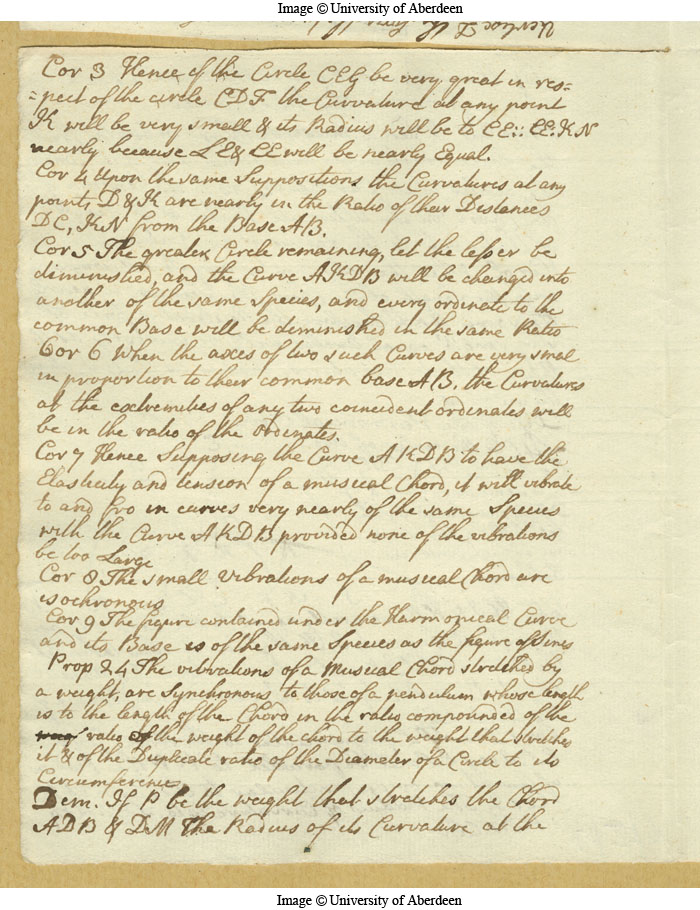 Image © University of Aberdeen
Cor 3 Hence if the Circle CEG be very great in res=
=pect of the circle CDF the Curvature at any point
K will be very small & its Radius will be to CE :: CE : KN
nearly because LE & CE will be nearly Equal.
Cor 4 Upon the same Suppositions the Curvatures at any
points D & K are nearly in the Ratio of their Distances
DC, KN from the Base AB.
Cor 5 The greater Circle remaining, let the lesser be
diminished, and the Curve AKDB will be changed into
another of the same Species, and every ordinate to the
common Base will be diminished in the same Ratio
Cor 6 When the axes of two such Curves are very smal
in proportion to their common base AB. the Curvatures
at the extremities of any two coincident ordinates will
be in the ratio of the ordinates.
Cor 7 Hence Supposing the Curve AKDB to have the
Elasticity and tension of a musical Chord, it will vibrate
to and fro in curves very nearly of the same Species
with the Curve AKDB provided none of the vibrations
be too Large
Cor 8 The small vibrations of a musical Chord are
isochronous
Cor 9 The figure contained under the Harmonical Curve
and its Base is of the same Species as the figure of Sines
Prop 24 The vibrations of a Musical Chord stretched by
a weight, are Synchronous to those of a pendulum whose length
is to the length of the Chord in the ratio compounded of the
ratio of the weight of the chord to the weight that stretches
it & of the Duplicate ratio of the Diameter of a Circle to its
Circumference
Dem. If P be the weight that stretches the Chord
ADB & DM The Radius of its Curvature at the
Image © University of Aberdeen